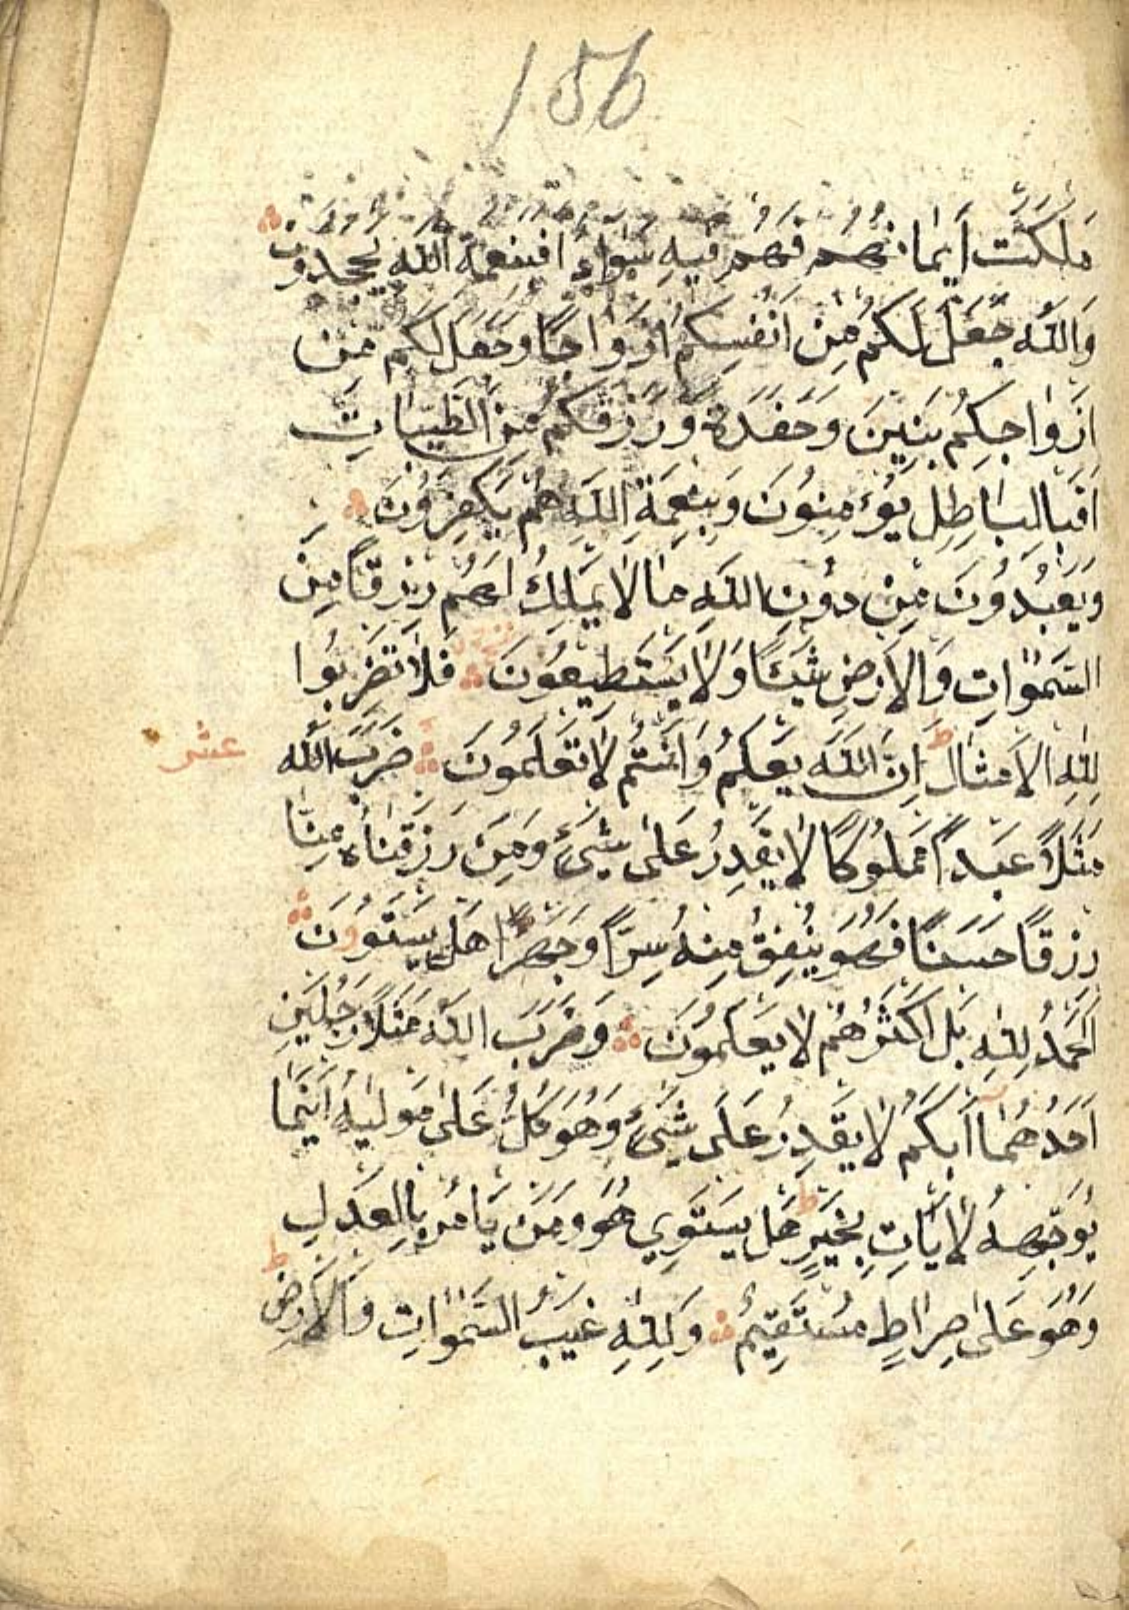 156
مَلَكَتْ اَيْمَانُهُمْ فَهُمْ فِيهِ سَوَاءٌ اَفَبِنِعْمَةِ اللّٰهِ يَجْحَدُونَ
وَاللّٰهُ جَعَلَ لَكُمْ مِنْ اَنْفُسِكُمْ اَزْوَاجًا وَجَعَلَ لَكُمْ مِنْ
اَزْوَاجِكُمْ بَنِينَ وَحَفَدَةً وَرَزَقَكُمْ مِنَ الطَّيِّبَاتِ
اَفَبِالْبَاطِلِ يُؤْمِنُونَ وَبِنِعْمَةِ اللّٰهِ هُمْ يَكْفُرُونَ
وَيَعْبُدُونَ مِنْ دُونِ اللّٰهِ مَا لَا يَمْلِكُ لَهُمْ رِزْقًا مِنَ
السَّمٰوَاتِ وَالْاَرْضِ شَيْئًا وَلَا يَسْتَطِيعُونَ فَلَا تَضْرِبُوا
لِلّٰهِ الْاَمْثَالَ ط اِنَّ اللّٰهَ يَعْلَمُ وَاَنْتُمْ لَا تَعْلَمُونَ ضَرَبَ اللّٰهُ
عشر
مَثَلًا عَبْدًا مَمْلُوكًا لَا يَقْدِرُ عَلٰى شَيْءٍ وَمَنْ رَزَقْنَاهُ مِنَّا
رِزْقًا حَسَنًا فَهُوَ يُنْفِقُ مِنْهُ سِرًّا وَجَهْرًا هَلْ يَسْتَوُونَ
اَلْحَمْدُ لِلّٰهِ بَلْ اَكْثَرُهُمْ لَا يَعْلَمُونَ وَضَرَبَ اللّٰهُ مَثَلًا رَجُلَيْنِ
اَحَدُهُمَا اَبْكَمُ لَا يَقْدِرُ عَلٰى شَيْءٍ وَهُوَ كَلٌّ عَلٰى مَوْلٰيهُ اَيْنَمَا
يُوَجِّهْهُ لَا يَاْتِ بِخَيْرٍ ط هَلْ يَسْتَوِي هُوَ وَمَنْ يَاْمُرُ بِالْعَدْلِ
وَهُوَ عَلٰى صِرَاطٍ مُسْتَقِيمٍ وَلِلّٰهِ غَيْبُ السَّمٰوَاتِ وَالْاَرْضِ ط